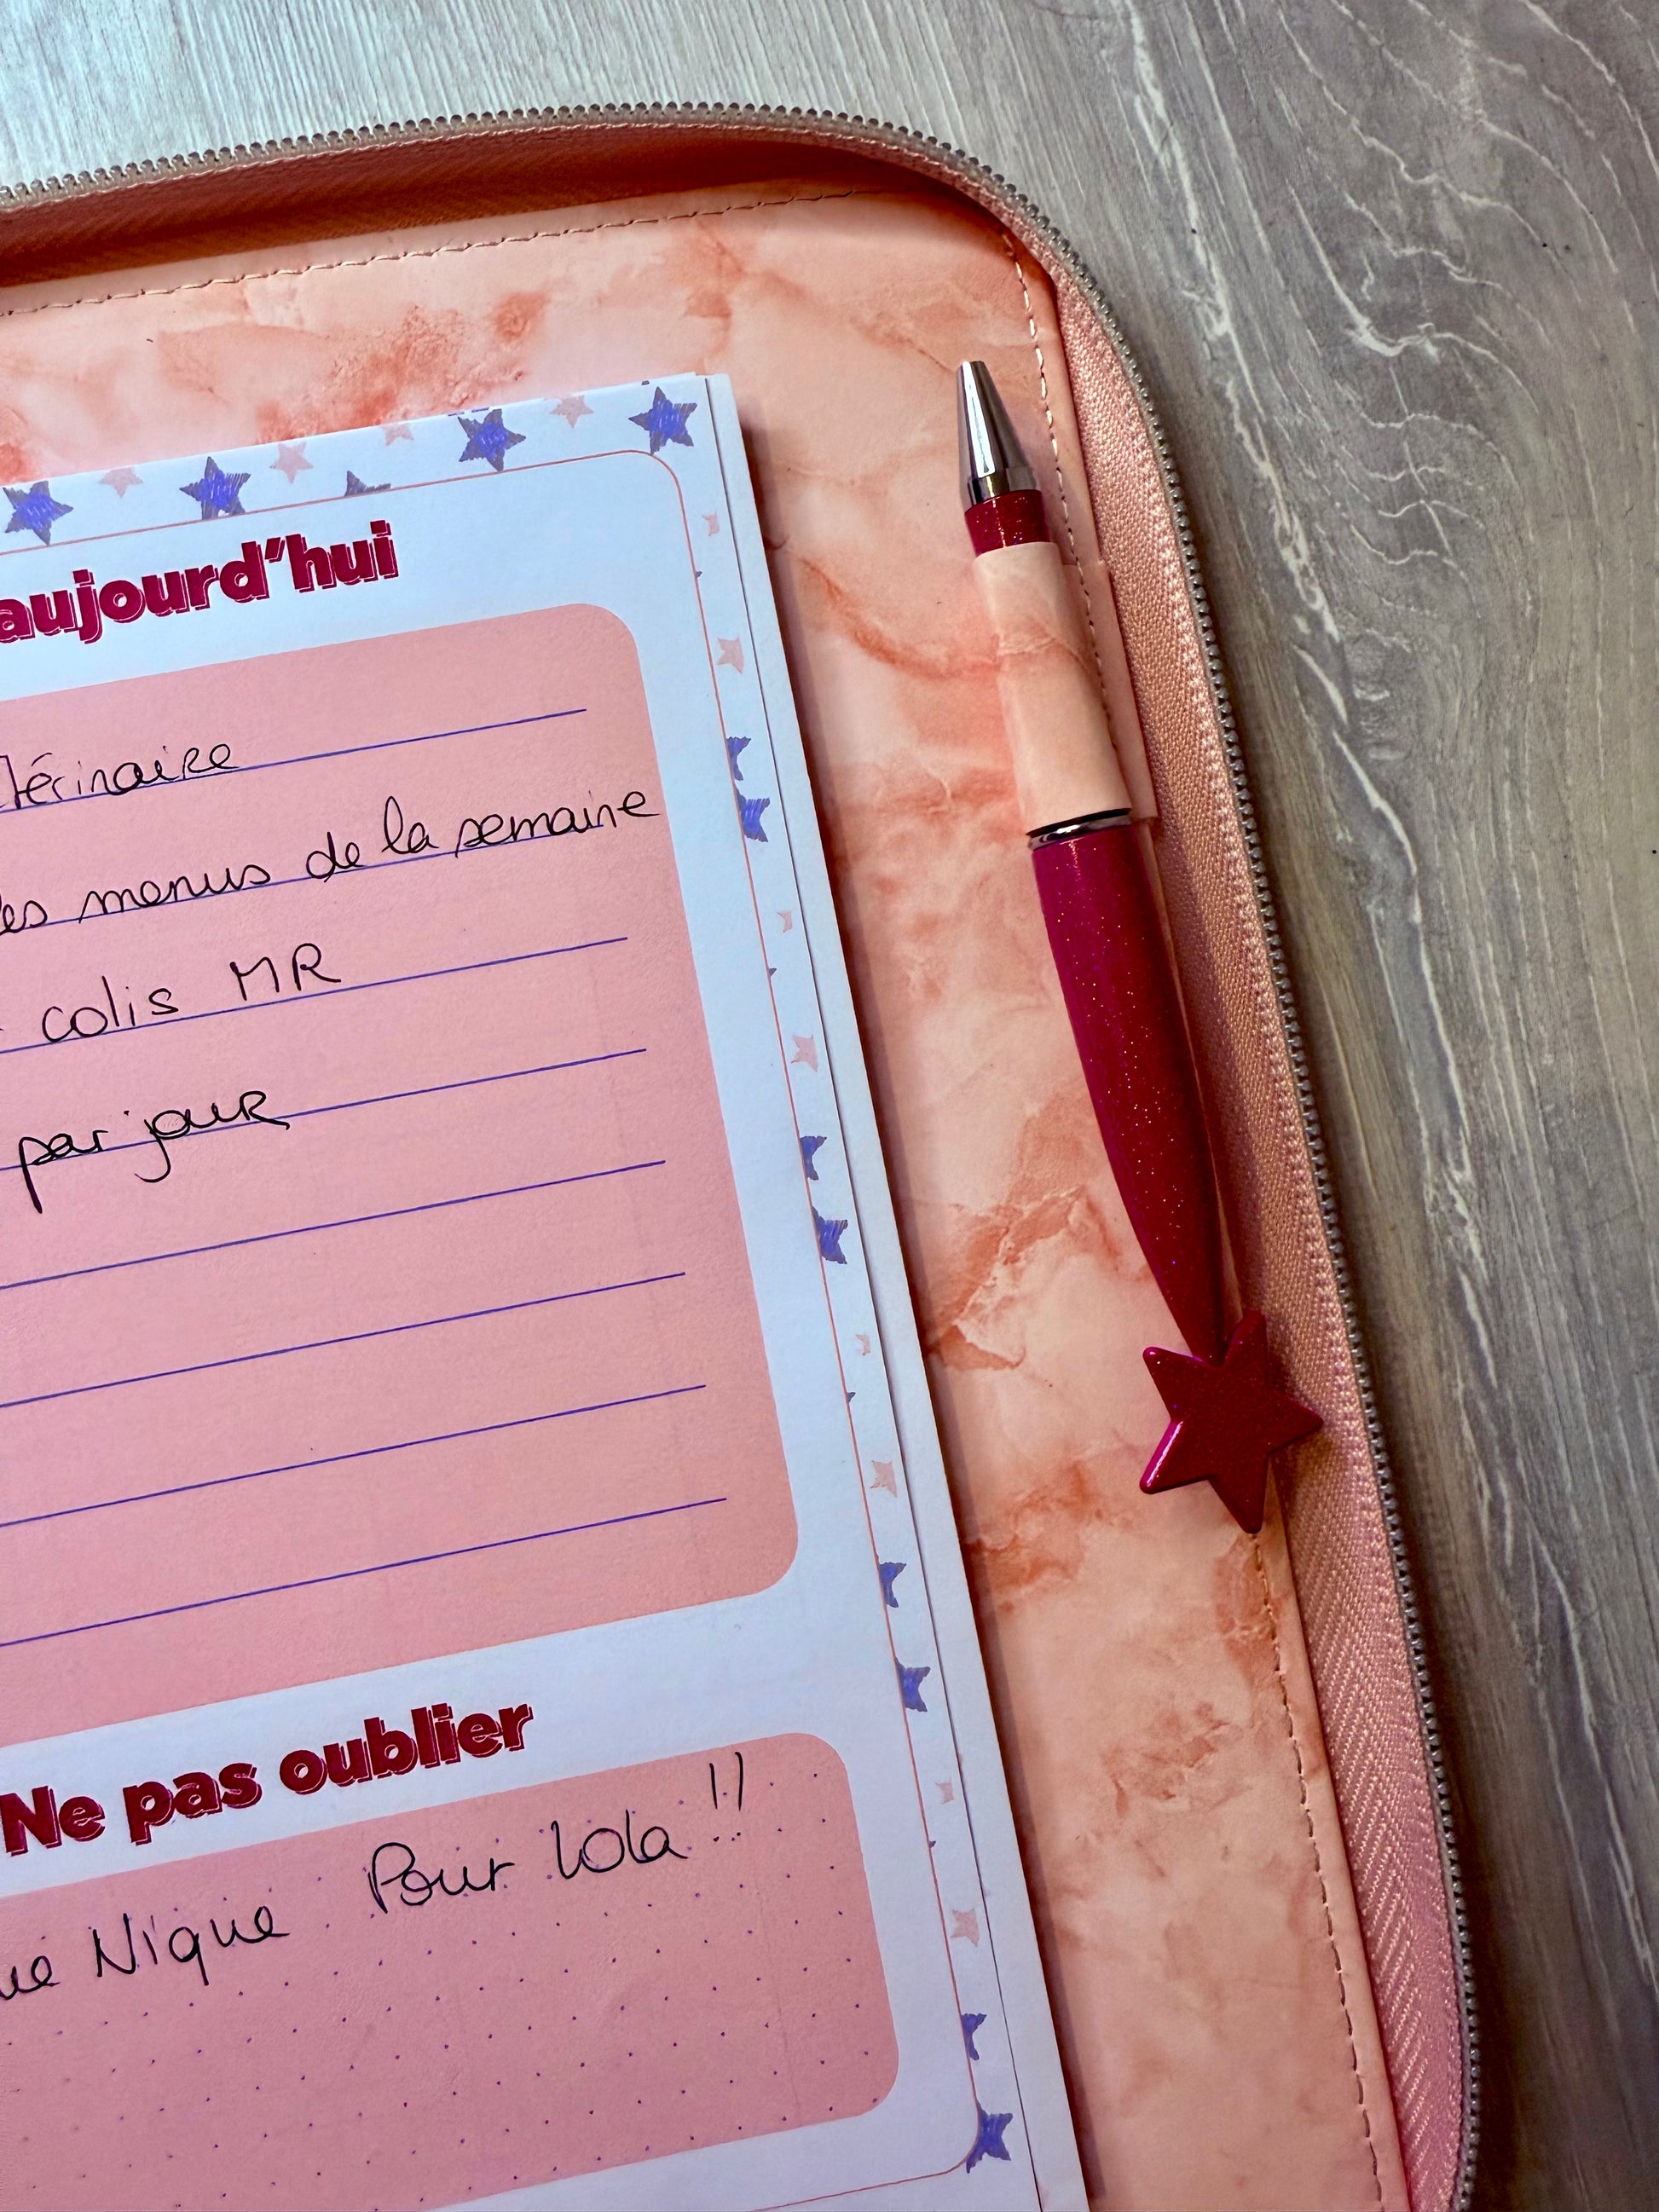 aujourd'hui
térinaire
les menus de la semaine
colis MR
par jour
Ne pas oublier
Pour Lola !!
ue Nique